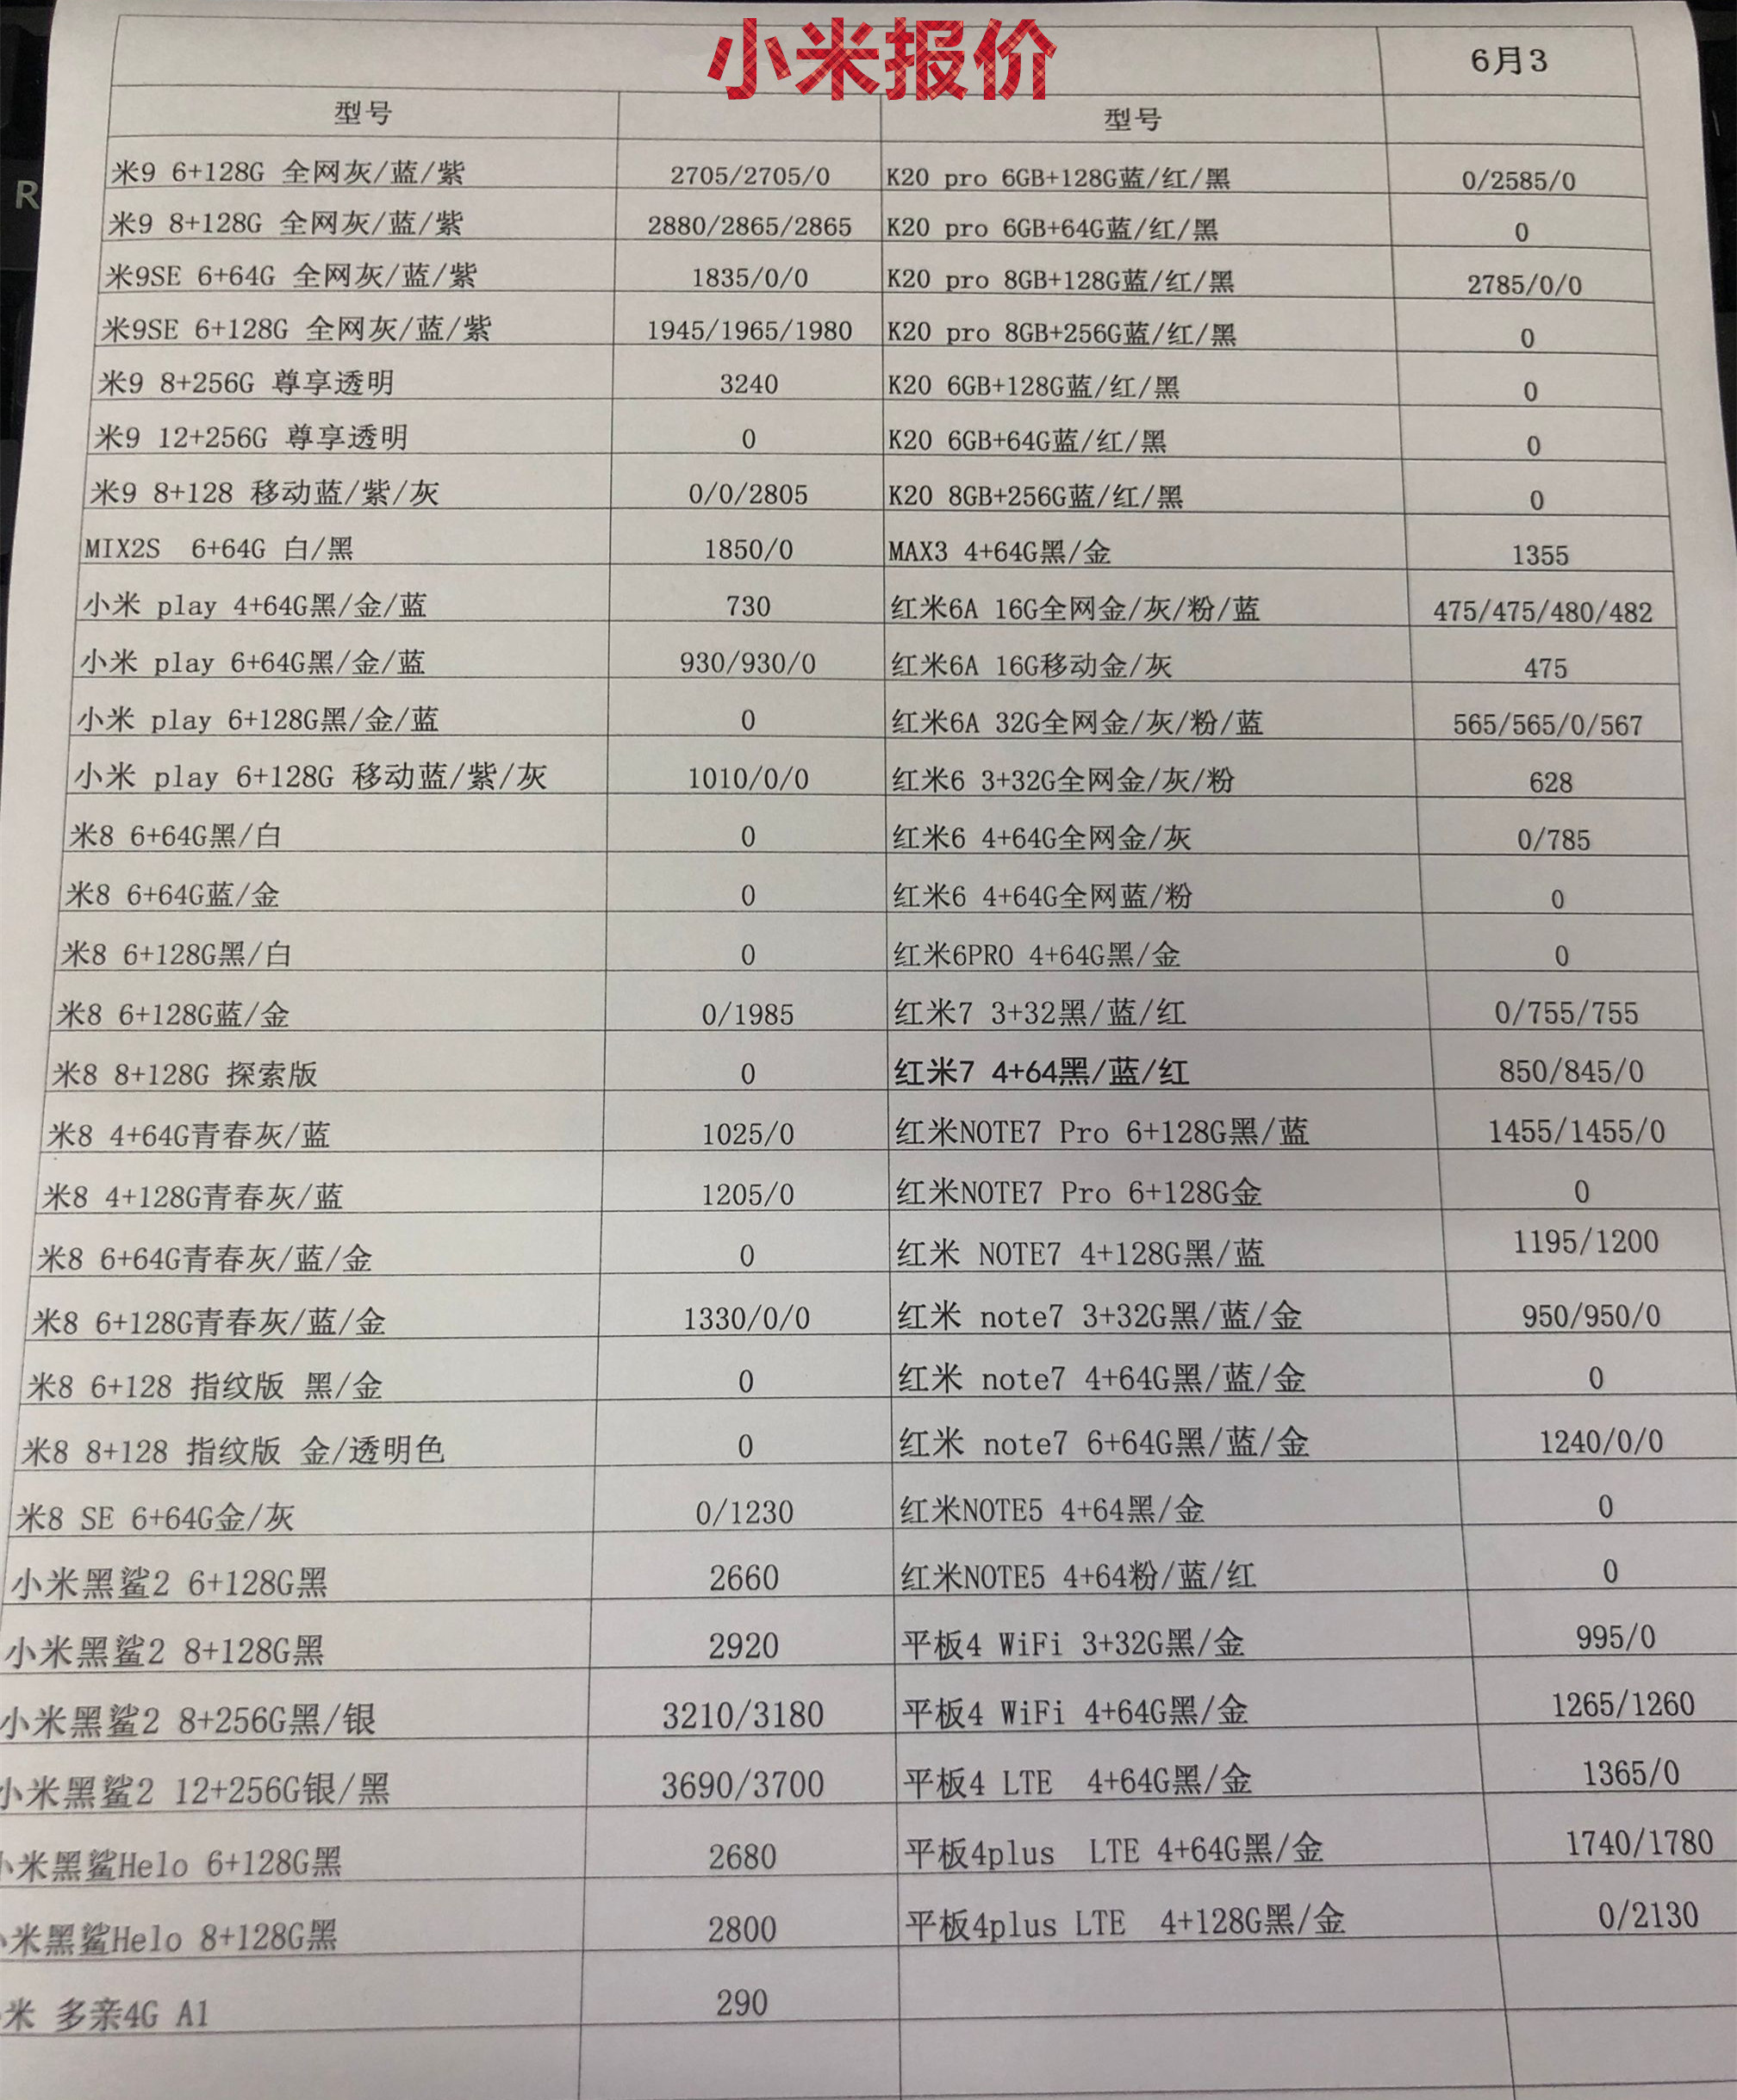 小米报价 6月3
型号 型号
米9 6+128G 全网灰/蓝/紫 2705/2705/0 K20 pro 6GB+128G蓝/红/黑 0/2585/0
米9 8+128G 全网灰/蓝/紫 2880/2865/2865 K20 pro 6GB+64G蓝/红/黑 0
米9SE 6+64G 全网灰/蓝/紫 1835/0/0 K20 pro 8GB+128G蓝/红/黑 2785/0/0
米9SE 6+128G 全网灰/蓝/紫 1945/1965/1980 K20 pro 8GB+256G蓝/红/黑 0
米9 8+256G 尊享透明 3240 K20 6GB+128G蓝/红/黑 0
米9 12+256G 尊享透明 0 K20 6GB+64G蓝/红/黑 0
米9 8+128 移动蓝/紫/灰 0/0/2805 K20 8GB+256G蓝/红/黑 0
MIX2S 6+64G 白/黑 1850/0 MAX3 4+64G黑/金 1355
小米 play 4+64G黑/金/蓝 730 红米6A 16G全网金/灰/粉/蓝 475/475/480/482
小米 play 6+64G黑/金/蓝 930/930/0 红米6A 16G移动金/灰 475
小米 play 6+128G黑/金/蓝 0 红米6A 32G全网金/灰/粉/蓝 565/565/0/567
小米 play 6+128G 移动蓝/紫/灰 1010/0/0 红米6 3+32G全网金/灰/粉 628
米8 6+64G黑/白 0 红米6 4+64G全网金/灰 0/785
米8 6+64G蓝/金 0 红米6 4+64G全网蓝/粉 0
米8 6+128G黑/白 0 红米6PRO 4+64G黑/金 0
米8 6+128G蓝/金 0/1985 红米7 3+32黑/蓝/红 0/755/755
米8 8+128G 探索版 0 红米7 4+64黑/蓝/红 850/845/0
米8 4+64G青春灰/蓝 1025/0 红米NOTE7 Pro 6+128G黑/蓝 1455/1455/0
米8 4+128G青春灰/蓝 1205/0 红米NOTE7 Pro 6+128G金 0
米8 6+64G青春灰/蓝/金 0 红米 NOTE7 4+128G黑/蓝 1195/1200
米8 6+128G青春灰/蓝/金 1330/0/0 红米 note7 3+32G黑/蓝/金 950/950/0
米8 6+128 指纹版 黑/金 0 红米 note7 4+64G黑/蓝/金 0
米8 8+128 指纹版 金/透明色 0 红米 note7 6+64G黑/蓝/金 1240/0/0
米8 SE 6+64G金/灰 0/1230 红米NOTE5 4+64黑/金 0
小米黑鲨2 6+128G黑 2660 红米NOTE5 4+64粉/蓝/红 0
小米黑鲨2 8+128G黑 2920 平板4 WiFi 3+32G黑/金 995/0
小米黑鲨2 8+256G黑/银 3210/3180 平板4 WiFi 4+64G黑/金 1265/1260
小米黑鲨2 12+256G银/黑 3690/3700 平板4 LTE 4+64G黑/金 1365/0
小米黑鲨Helo 6+128G黑 2680 平板4plus LTE 4+64G黑/金 1740/1780
小米黑鲨Helo 8+128G黑 2800 平板4plus LTE 4+128G黑/金 0/2130
米 多亲4G A1 290
R